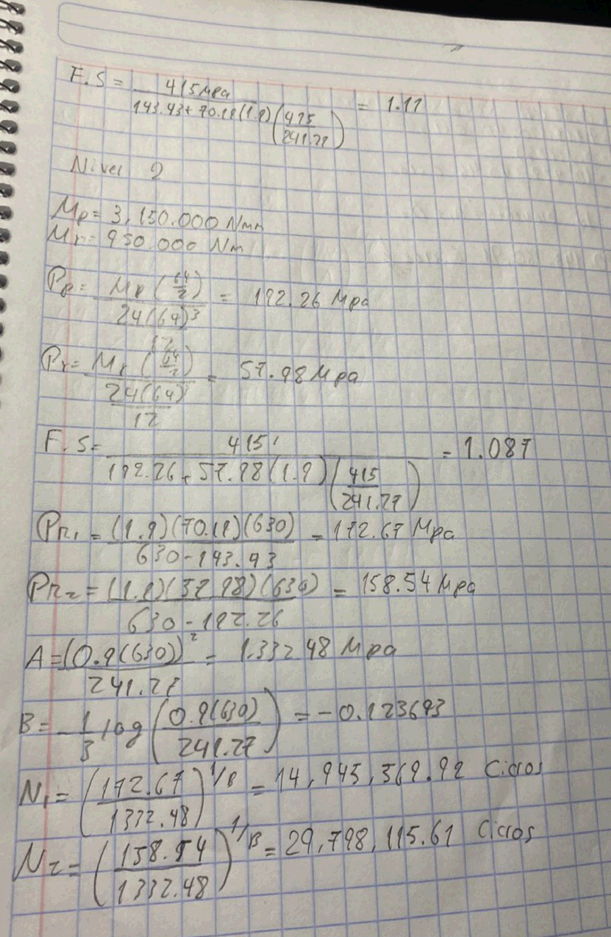 F.S = 415Mpa / (143.43 + 70.18(1.9)(415/241.27)) = 1.11
Nivel 2
Mp = 3,150.000 Nmm
Mr = 950.000 Nm
Pp = Mp(64/2) / (24(64)³/12) = 192.26 Mpa
Pr = Mr(64/2) / (24(64)/12) = 57.98 Mpa
F.S = 415 / (192.26 + 57.98(1.9)(415/241.27)) = 1.087
PR₁ = (1.9)(70.18)(630) / (630 - 143.43) = 172.67 Mpa
PR₂ = (1.9)(57.98)(630) / (630 - 192.26) = 158.54 Mpa
A = (0.9(630))² / 241.27 = 1.332.48 Mpa
B = -1/3 log(0.9(630)/241.27) = -0.123693
N₁ = (172.67/1332.48)^1/B = 14,945,369.92 Ciclos
N₂ = (158.54/1332.48)^1/B = 29,798,115.61 Ciclos